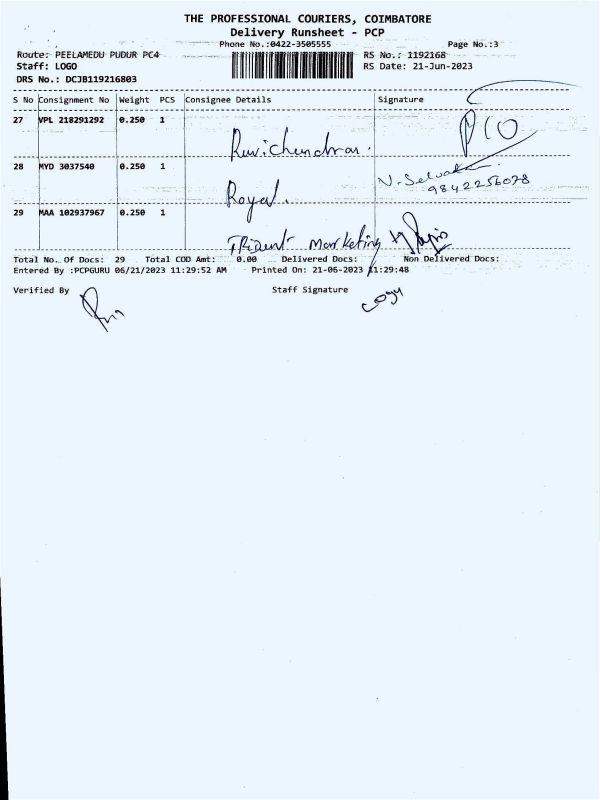 THE PROFESSIONAL COURIERS, COIMBATORE
Delivery Runsheet - PCP
Phone No.:0422-3505555 Page No.:3
Route: PEELAMEDU PUDUR PC4 RS No.: 1192168
Staff: LOGO RS Date: 21-Jun-2023
DRS No.: DCJB119216803
S No Consignment No Weight PCS Consignee Details Signature
27 VPL 218291292 0.250 1
Ravichandran. P10
28 MYD 3037540 0.250 1
Royal. N. Selvakumar
9842256078
29 MAA 102937967 0.250 1
TRident Marketing
Total No. Of Docs: 29 Total COD Amt: 0.00 Delivered Docs: Non Delivered Docs:
Entered By :PCPGURU 06/21/2023 11:29:52 AM Printed On: 21-06-2023 11:29:48
Verified By Staff Signature